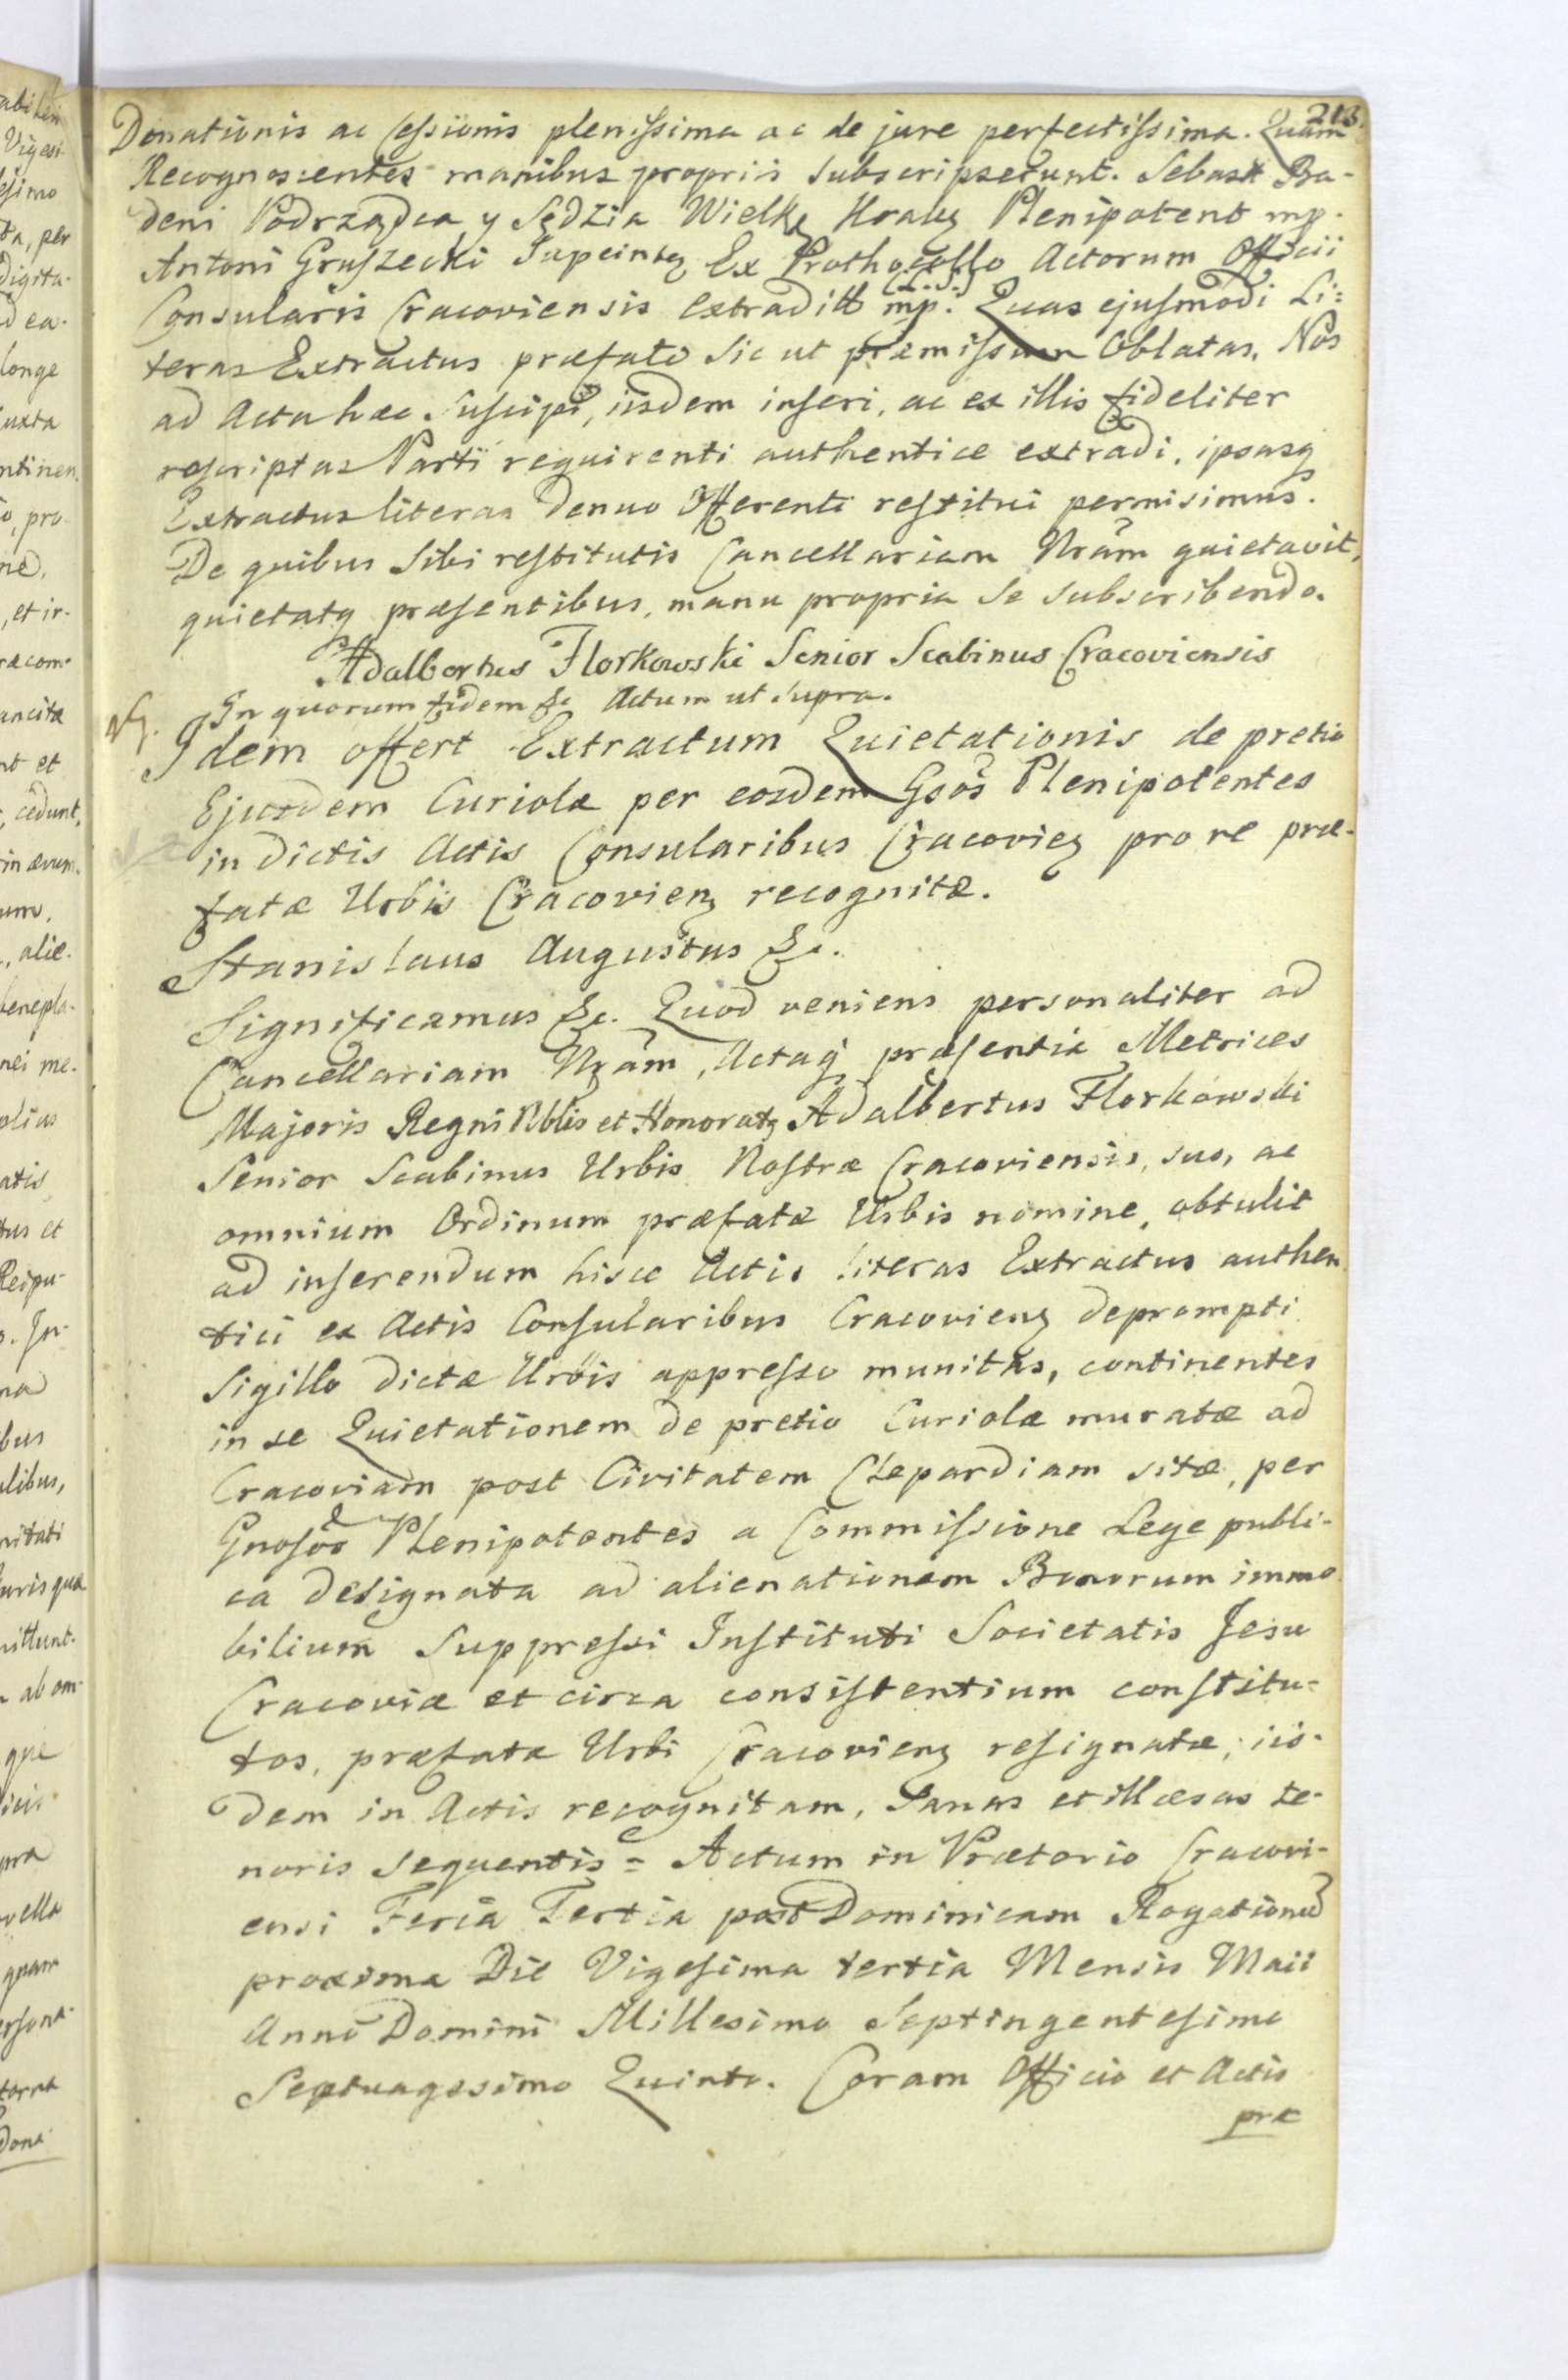 213.
Donationis ac Cessionis plenissima ac de jure perfectissima. Quam
Recognoscentes manibus propriis subscripserunt. Sebast Ba-
deni Podrządca y Sędzia Wielki Plenipotent mp.
Antoni Gruszecki Ex Prothocollo Actorum Officii
(L.S.)
Consularis Cracoviensis extraditt mp. Quas ejusmodi Li=
teras Extractus præfati sic ut præmissum Oblatas, Nos
ad Acta hæc suscipi, iisdem inseri, ac ex illis fideliter
rescriptas Parti requirenti authentice extradi, ipsasq
Extractus literas denuo Offerenti restitui permisimus.
De quibus sibi restitutis Cancellariam Nram quietavit,
quietatq præsentibus, manu propria se subscribendo.
Adalbertus Florkowski Senior Scabinus Cracoviensis
In quorum fidem &c Actum ut supra.
Idem offert Extractum Quietationis de pretio
Ejusdem Curiolæ per eosdem Gsos Plenipotentes
in dictis Actis Consularibus Cracovien pro re præ-
fatæ Urbis Cracovien recognitæ.
Stanislaus Augustus &c.
Significamus &c. Quod veniens personaliter ad
Cancellariam Nram, Actaq præsentia Metrices
Majoris Regni Nblis et Honoratq Adalbertus Florkowski
Senior Scabinus Urbis Nostræ Cracoviensis, suo, ac
omnium Ordinum præfatæ Urbis nomine, obtulit
ad inserendum hisce Actis literas Extractus authen
tici ex Actis Consularibus Cracovien deprompti
Sigillo dictæ Urbis appresso munitas, continentes
in se Quietationem de pretio Curiolæ muratæ ad
Cracoviam post Civitatem Clepardiam sitæ, per
Gnosos Plenipotentes a Commissione Lege publi-
ca designata ad alienationem Bonorum immo
bilium Suppressi Instituti Societatis Jesu
Cracoviæ et circa consistentium constitu-
tos, præfatæ Urbi Cracovien resignatæ, iis-
dem in Actis recognitam, Sanas et illæsas te-
noris sequentis = Actum in Prætorio Cracovi-
ensi Feria Tertia post Dominicam Rogationū
proxima Die Vigesima tertia Mensis Maii
Anno Domini Millesimo Septingentesimo
Septuagesimo Quinto. Coram Officio et Actis
præ